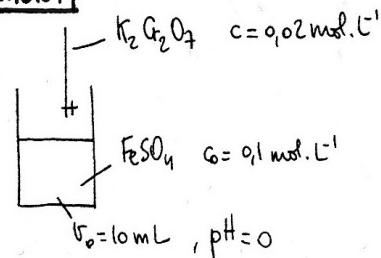 K₂Cr₂O₇ c = 0,02 mol.L⁻¹
FeSO₄ c₀ = 0,1 mol.L⁻¹
v₀ = 10 mL , pH = 0